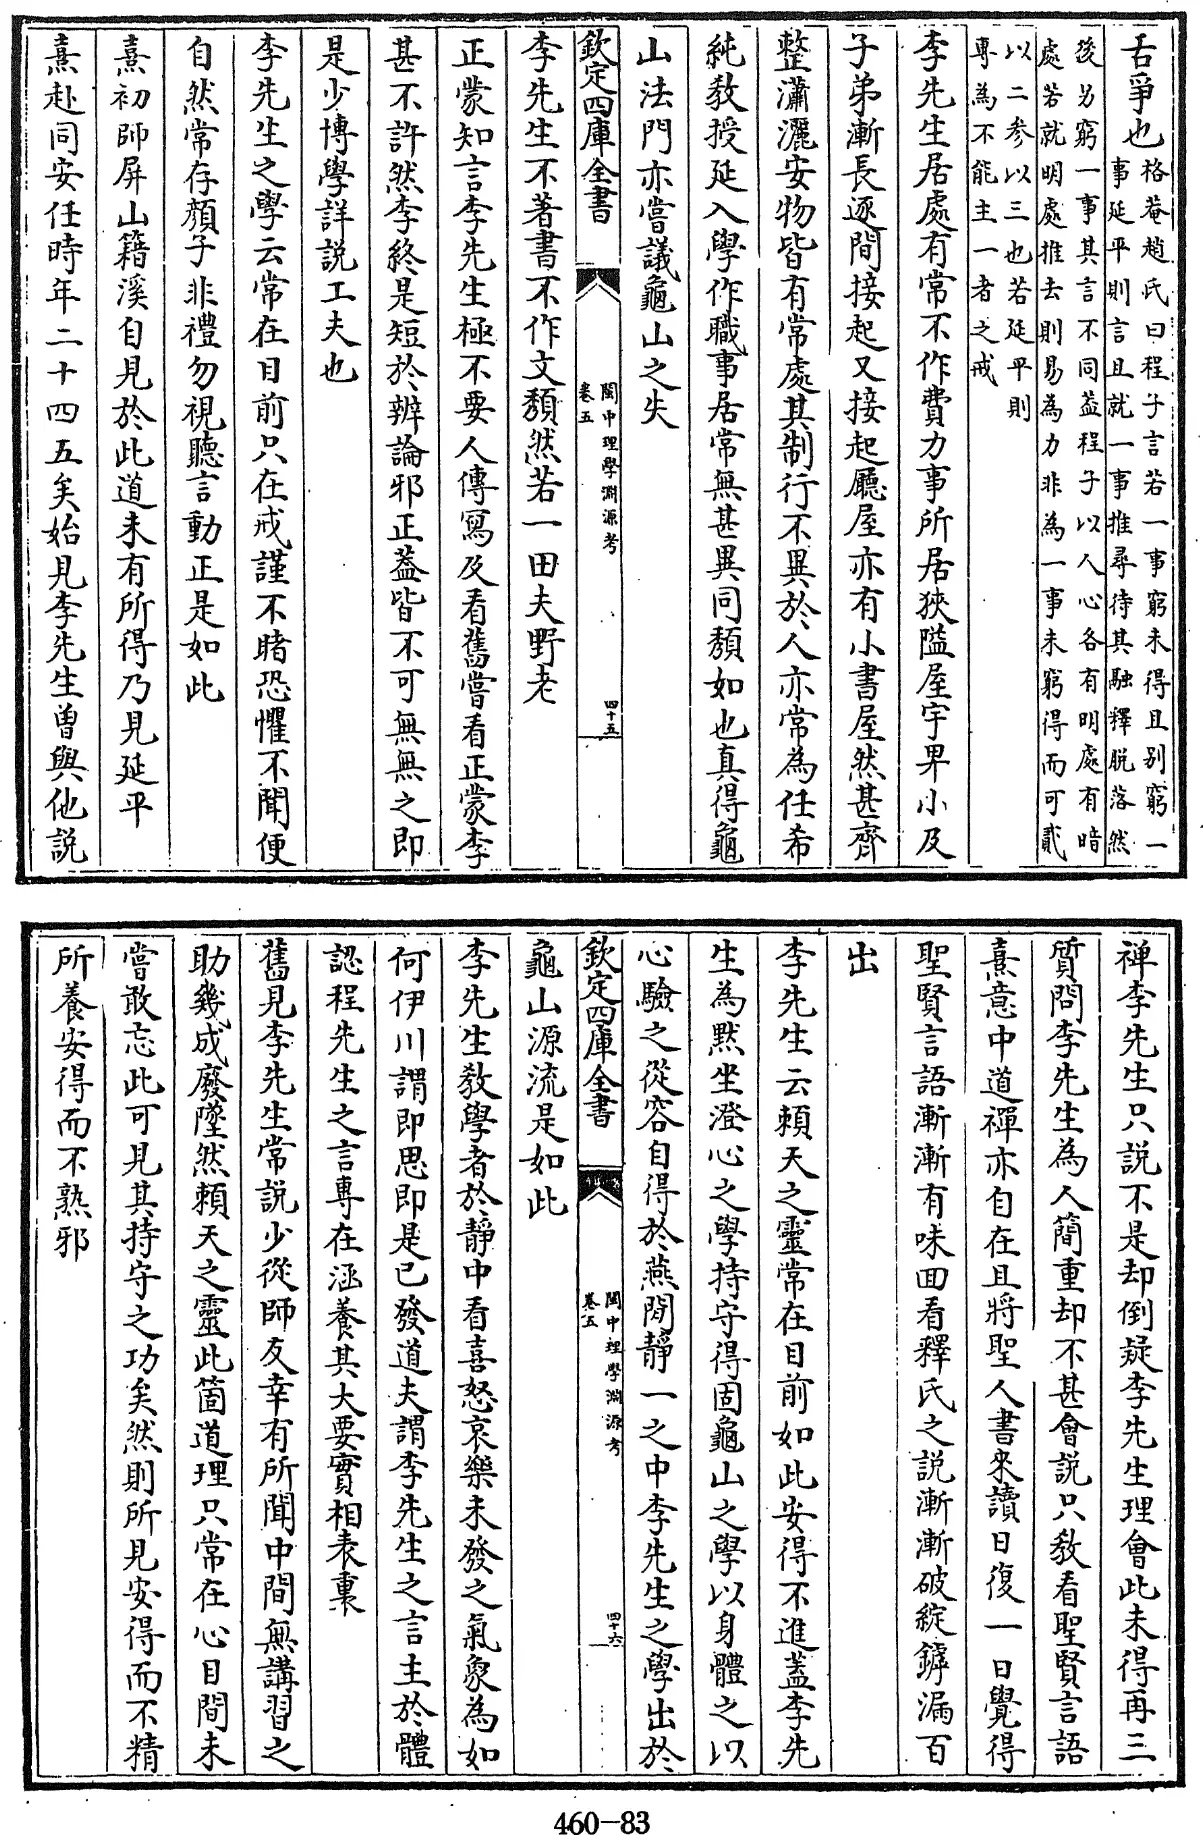 舌爭也格菴趙氏曰程子言若一事窮未得且别窮一
事延平則言且就一事推尋待其融釋脱落然
後另窮一事其言不同葢程子以人心各有明處有暗
處若就明處推去則易為力非為一事未窮得而可貳
以二参以三也若延平則
專為不能主一者之戒
李先生居處有常不作費力事所居狹隘屋宇卑小及
子弟漸長逐間接起又接起廳屋亦有小書屋然甚齊
整瀟灑安物皆有常處其制行不異於人亦常為任希
純教授延入學作職事居常無甚異同頽如也真得龜
山法門亦嘗議龜山之失
欽定四庫全書
閩中理學淵源考
卷五
四十五
李先生不著書不作文頽然若一田夫野老
正蒙知言李先生極不要人傳寫及看舊嘗看正蒙李
甚不許然李終是短於辨論邪正葢皆不可無無之即
是少博學詳説工夫也
李先生之學云常在目前只在戒謹不睹恐懼不聞便
自然常存顔子非禮勿視聽言動正是如此
熹初師屏山籍溪自見於此道未有所得乃見延平
熹赴同安任時年二十四五矣始見李先生曾與他説
禪李先生只説不是却倒疑李先生理會此未得再三
質問李先生為人簡重却不甚會説只教看聖賢言語
熹意中道禪亦自在且將聖人書來讀日復一日覺得
聖賢言語漸漸有味回看釋氏之説漸漸破綻罅漏百
出
李先生云頼天之靈常在目前如此安得不進蓋李先
生為黙坐澄心之學持守得固龜山之學以身體之以
心驗之從容自得於燕閒靜一之中李先生之學出於
欽定四庫全書
閩中理學淵源考
卷五
四十六
龜山源流是如此
李先生教學者於靜中看喜怒哀樂未發之氣象為如
何伊川謂即思即是已發道夫謂李先生之言主於體
認程先生之言專在涵養其大要實相表裏
舊見李先生常説少從師友幸有所聞中間無講習之
助幾成廢墜然頼天之靈此箇道理只常在心目間未
嘗敢忘此可見其持守之功矣然則所見安得而不精
所養安得而不熟邪
460-83